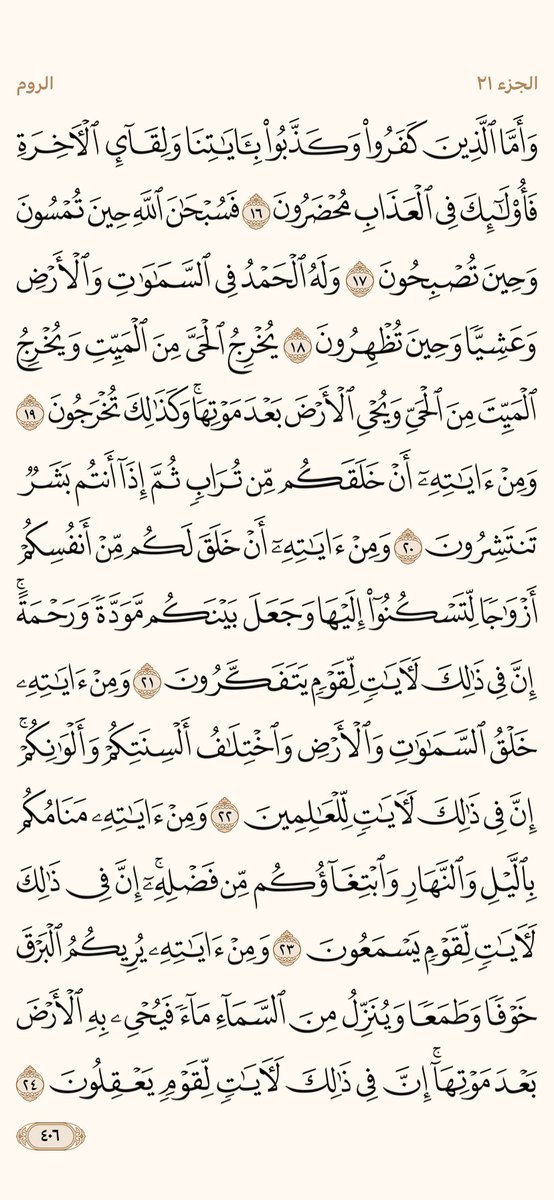 الجزء ٢١
الروم
وَأَمَّا ٱلَّذِينَ كَفَرُواْ وَكَذَّبُواْ بِـَٔايَٰتِنَا وَلِقَآيِٕ ٱلۡأٓخِرَةِ
فَأُوْلَٰٓئِكَ فِي ٱلۡعَذَابِ مُحۡضَرُونَ ١٦ فَسُبۡحَٰنَ ٱللَّهِ حِينَ تُمۡسُونَ
وَحِينَ تُصۡبِحُونَ ١٧ وَلَهُ ٱلۡحَمۡدُ فِي ٱلسَّمَٰوَٰتِ وَٱلۡأَرۡضِ
وَعَشِيّٗا وَحِينَ تُظۡهِرُونَ ١٨ يُخۡرِجُ ٱلۡحَيَّ مِنَ ٱلۡمَيِّتِ وَيُخۡرِجُ
ٱلۡمَيِّتَ مِنَ ٱلۡحَيِّ وَيُحۡيِ ٱلۡأَرۡضَ بَعۡدَ مَوۡتِهَاۚ وَكَذَٰلِكَ تُخۡرَجُونَ ١٩
وَمِنۡ ءَايَٰتِهِۦٓ أَنۡ خَلَقَكُم مِّن تُرَابٖ ثُمَّ إِذَآ أَنتُم بَشَرٞ
تَنتَشِرُونَ ٢٠ وَمِنۡ ءَايَٰتِهِۦٓ أَنۡ خَلَقَ لَكُم مِّنۡ أَنفُسِكُمۡ
أَزۡوَٰجٗا لِّتَسۡكُنُوٓاْ إِلَيۡهَا وَجَعَلَ بَيۡنَكُم مَّوَدَّةٗ وَرَحۡمَةًۚ
إِنَّ فِي ذَٰلِكَ لَأٓيَٰتٖ لِّقَوۡمٖ يَتَفَكَّرُونَ ٢١ وَمِنۡ ءَايَٰتِهِۦ
خَلۡقُ ٱلسَّمَٰوَٰتِ وَٱلۡأَرۡضِ وَٱخۡتِلَٰفُ أَلۡسِنَتِكُمۡ وَأَلۡوَٰنِكُمۡۚ
إِنَّ فِي ذَٰلِكَ لَأٓيَٰتٖ لِّلۡعَٰلِمِينَ ٢٢ وَمِنۡ ءَايَٰتِهِۦ مَنَامُكُم
بِٱلَّيۡلِ وَٱلنَّهَارِ وَٱبۡتِغَآؤُكُم مِّن فَضۡلِهِۦٓۚ إِنَّ فِي ذَٰلِكَ
لَأٓيَٰتٖ لِّقَوۡمٖ يَسۡمَعُونَ ٢٣ وَمِنۡ ءَايَٰتِهِۦ يُرِيكُمُ ٱلۡبَرۡقَ
خَوۡفٗا وَطَمَعٗا وَيُنَزِّلُ مِنَ ٱلسَّمَآءِ مَآءٗ فَيُحۡيِۦ بِهِ ٱلۡأَرۡضَ
بَعۡدَ مَوۡتِهَآۚ إِنَّ فِي ذَٰلِكَ لَأٓيَٰتٖ لِّقَوۡمٖ يَعۡقِلُونَ ٢٤
٤٠٦